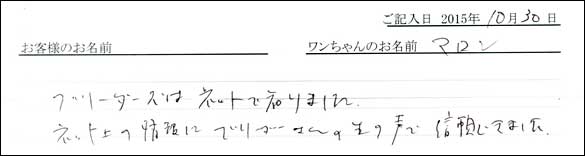 ご記入日 2015年10月30日
お客様のお名前 ワンちゃんのお名前 マロン
ブリーダーズは ネットで知りました.
ネット上の情報に ブリーダーさんの生の声で 信頼できました.